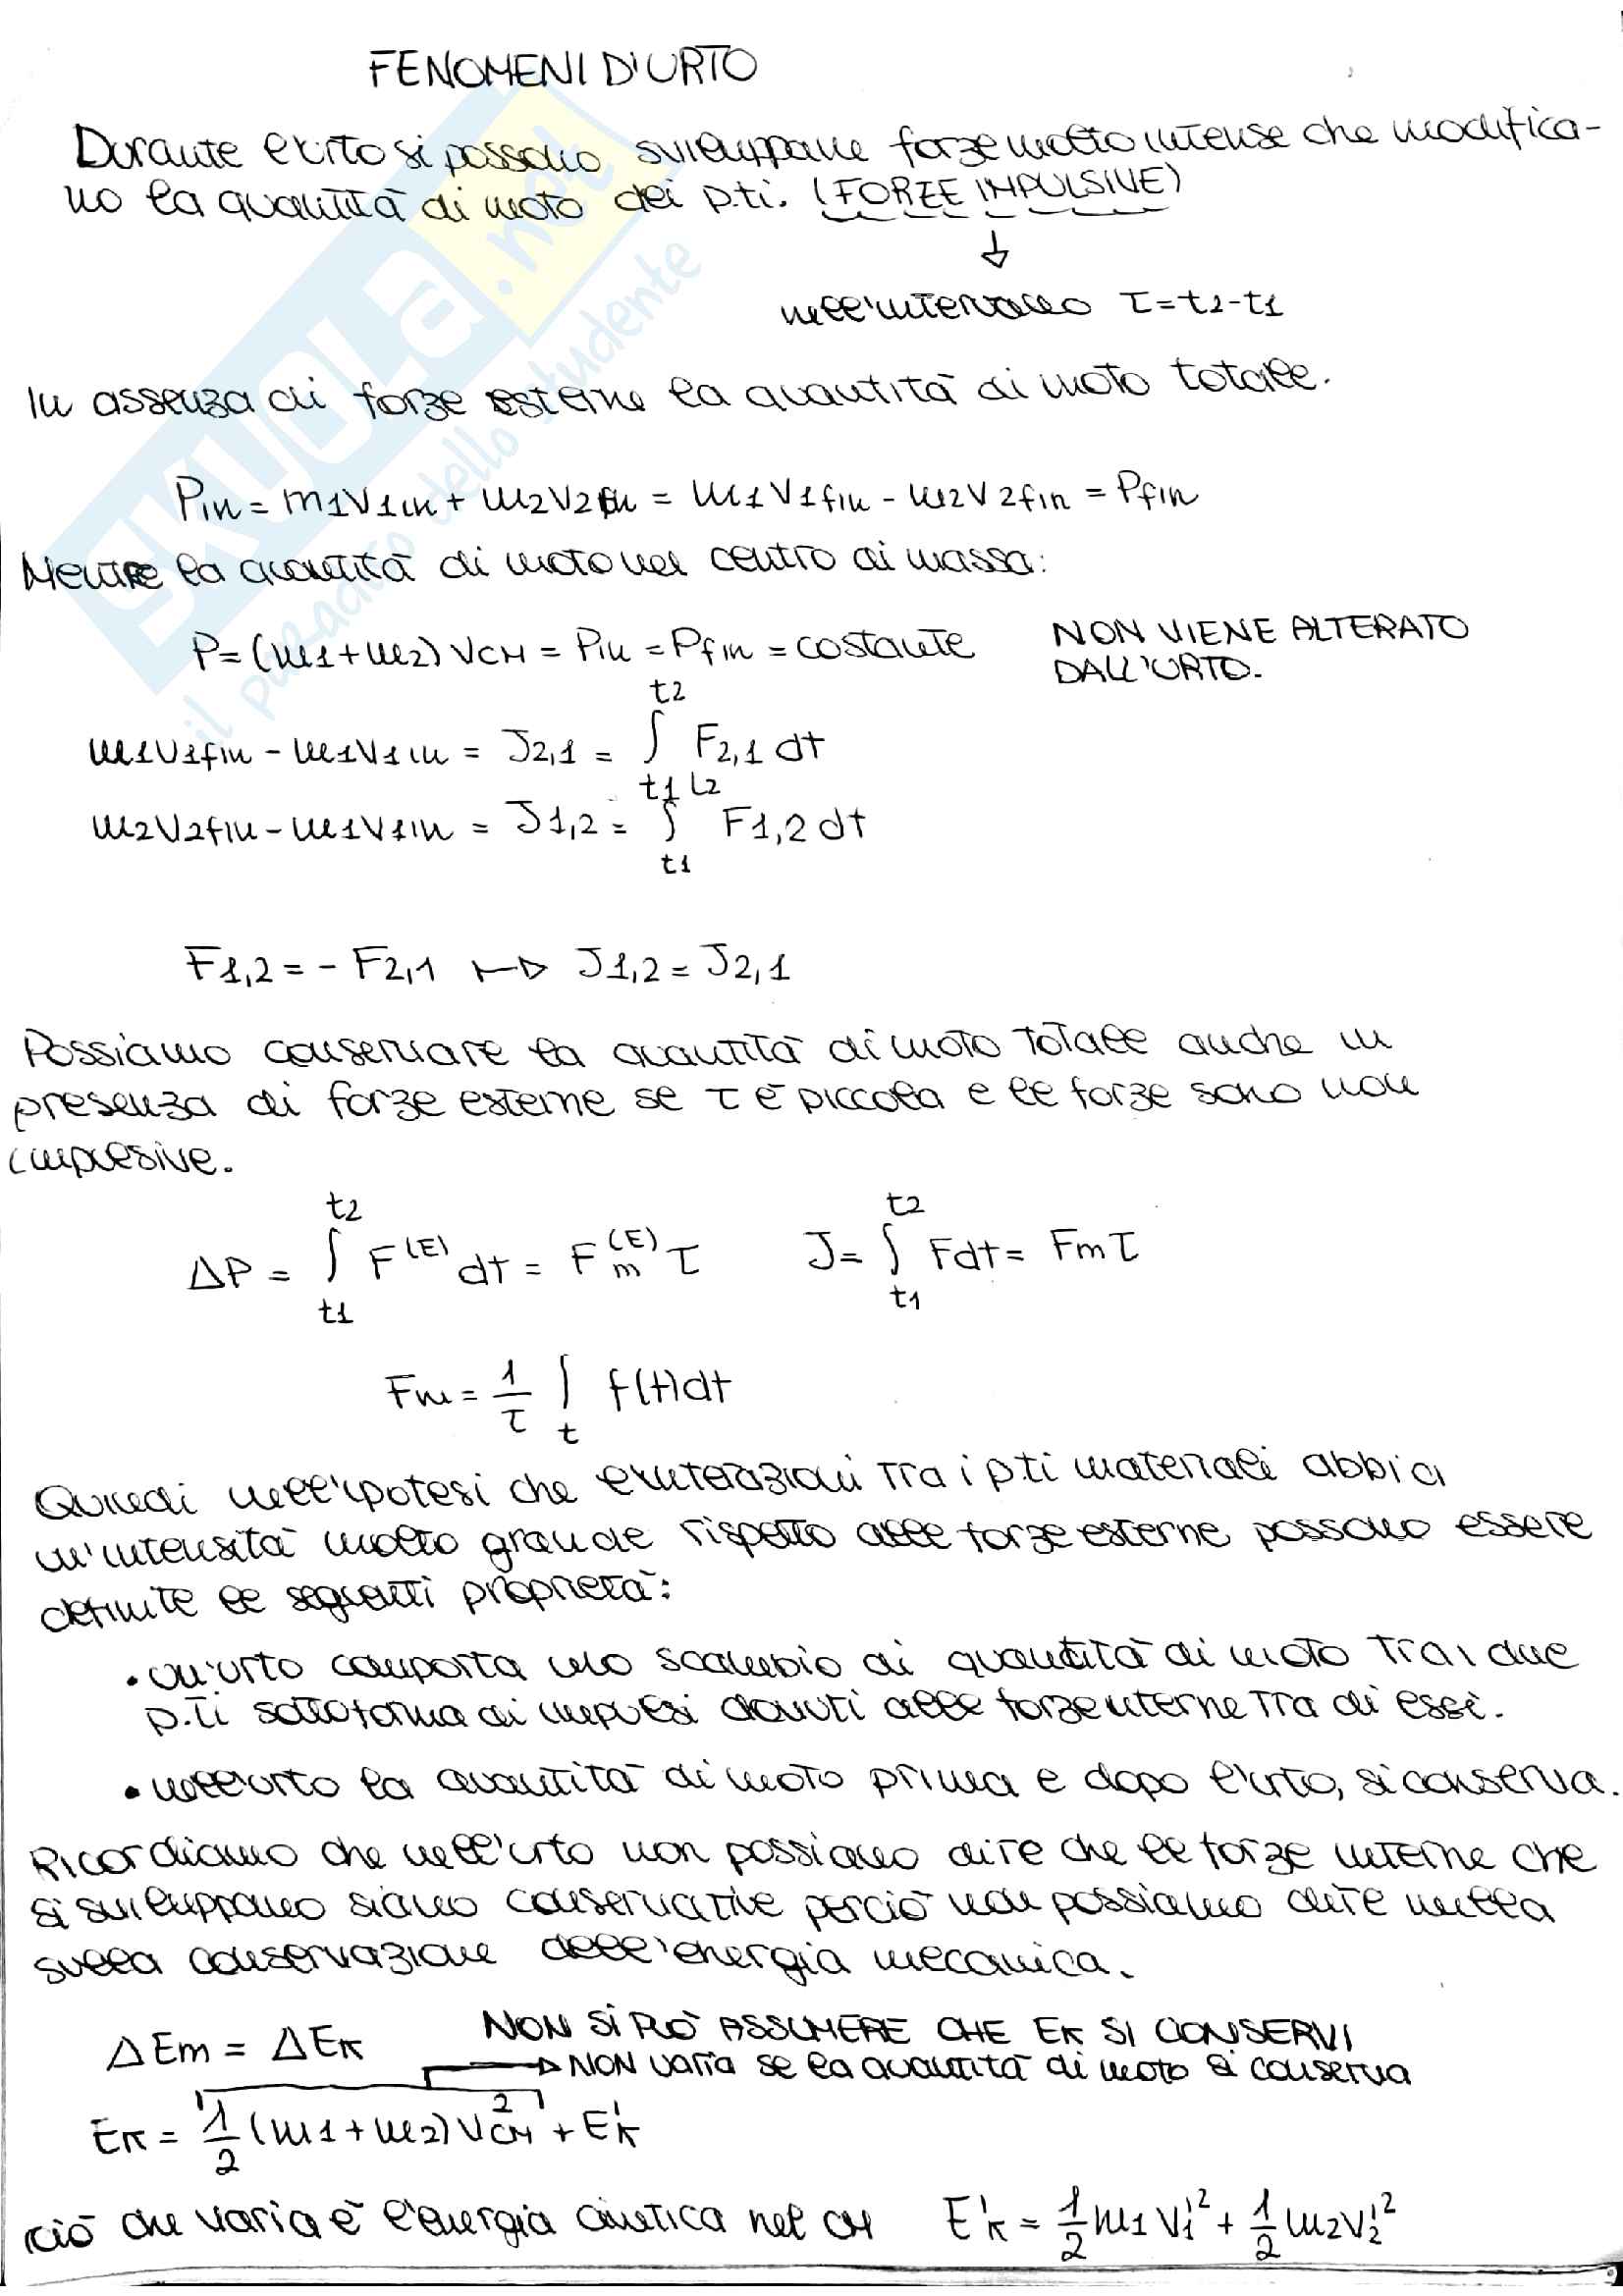 FENOMENI D'URTO
Durante l'urto si possono sviluppare forze molto intense che modifica-
no la quantità di moto dei p.ti. (FORZE IMPULSIVE)
↓
nell'intervallo τ=t2-t1
In assenza di forze esterne la quantità di moto totale.
Pin = m1V1in + m2V2in = m1V1fin - m2V2fin = Pfin
Mentre la quantità di moto nel centro di massa:
P=(m1+m2) VCM = Pin = Pfin = costante
NON VIENE ALTERATO
DALL'URTO.
m1V1fin - m1V1in = J2,1 = ∫t1t2 F2,1 dt
m2V2fin - m1V1in = J1,2 = ∫t1t2 F1,2 dt
F1,2 = - F2,1 ↦ J1,2 = J2,1
Possiamo conservare la quantità di moto totale anche in
presenza di forze esterne se τ è piccola e le forze sono non
impulsive.
ΔP = ∫t1t2 F(E) dt = Fm(E) τ J = ∫t1t2 Fdt = Fm τ
Fm = 1/τ ∫t f(t)dt
Quindi nell'ipotesi che l'interazioni tra i p.ti materiali abbia
un'intensità molto grande rispetto alle forze esterne possono essere
definite le seguenti proprietà:
• un'urto comporta uno scambio di quantità di moto tra i due
p.ti sottoforma di impulsi dovuti alle forze interne tra di essi.
• nell'urto la quantità di moto prima e dopo l'urto, si conserva.
Ricordiamo che nell'urto non possiamo dire che le forze interne che
si sviluppano siano conservative perciò non possiamo dire nulla
sulla conservazione dell'energia meccanica.
ΔEm = ΔEK NON SI PUÒ ASSUMERE CHE EK SI CONSERVI
→ NON varia se la quantità di moto si conserva
EK = 1/2 (m1+m2) VCM² + E'K
ciò che varia è l'energia cinetica nel CM E'K = 1/2 m1 V1'² + 1/2 m2 V2'²
SKUOLA.net
il paradiso dello studente